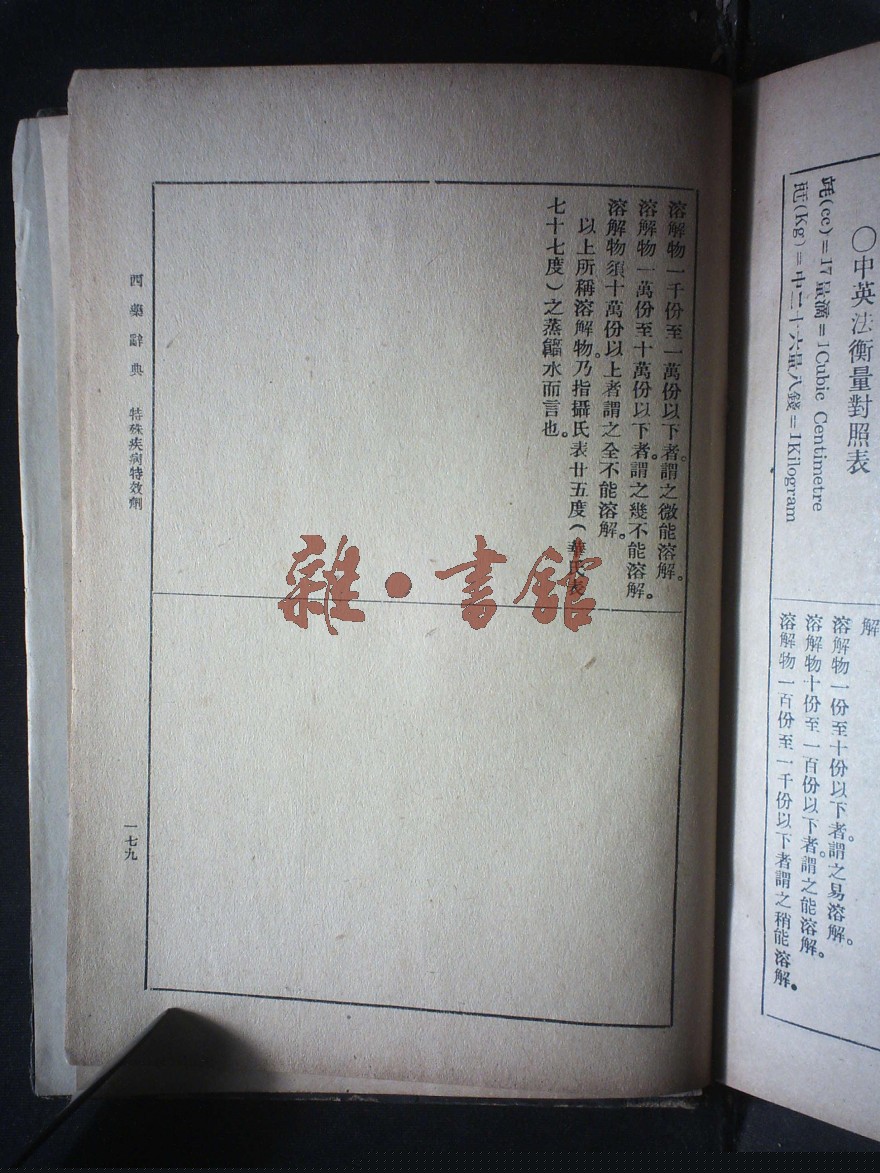 〇中英法衡量對照表
竓(cc)=17最滴=1Cubic Centimetre
(Kg)=中二十六最八錢=1Kilogram
解
溶解物一份至十份以下者。謂之易溶解。
溶解物十份至一百份以下者。謂之能溶解。
溶解物一百份至一千份以下者謂之稍能溶解。
溶解物一千份至一萬份以下者。謂之微能溶解。
溶解物一萬份至十萬份以下者。謂之幾不能溶解。
溶解物須十萬份以上者謂之全不能溶解。
以上所稱溶解物。乃指攝氏表廿五度(華氏表
七十七度)之蒸餾水而言也。
西藥辭典 特殊疾病特效劑
一七九
雜·書館